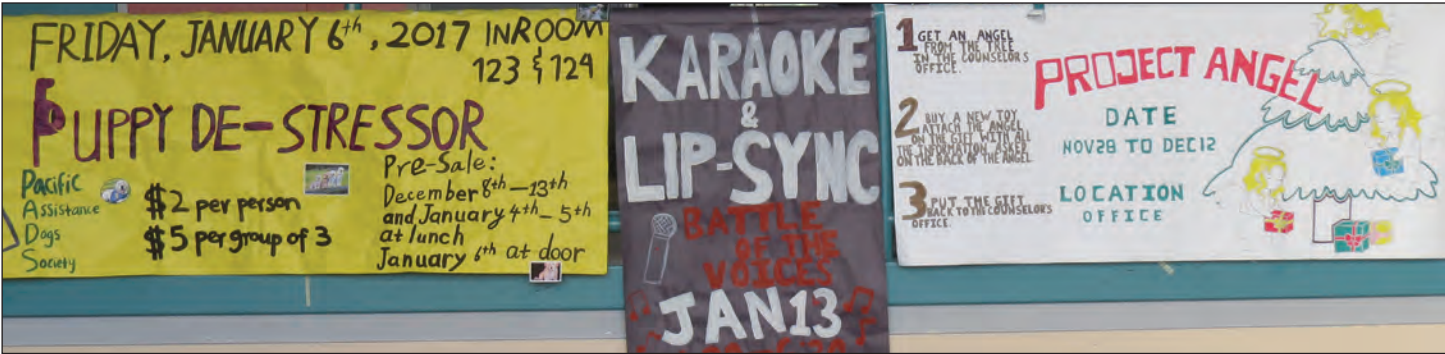 FRIDAY, JANUARY 6th, 2017 IN ROOM
123 & 124
PUPPY DE-STRESSOR
Pacific
Assistance
Dogs
Society
$2 per person
$5 per group of 3
Pre-Sale:
December 8th-13th
and January 4th-5th
at lunch
January 6th at door
KARAOKE
&
LIP-SYNC
BATTLE
OF THE
VOICES
JAN13
1 GET AN ANGEL
FROM THE TREE
IN THE COUNSELORS
OFFICE.
2 BUY A NEW TOY
ATTACH THE ANGEL
ON THE GIFT WITH ALL
THE INFORMATION ASKED
ON THE BACK OF THE ANGEL.
3 PUT THE GIFT
BACK TO THE COUNSELORS
OFFICE.
PROJECT ANGEL
DATE
NOV28 TO DEC12
LOCATION
OFFICE